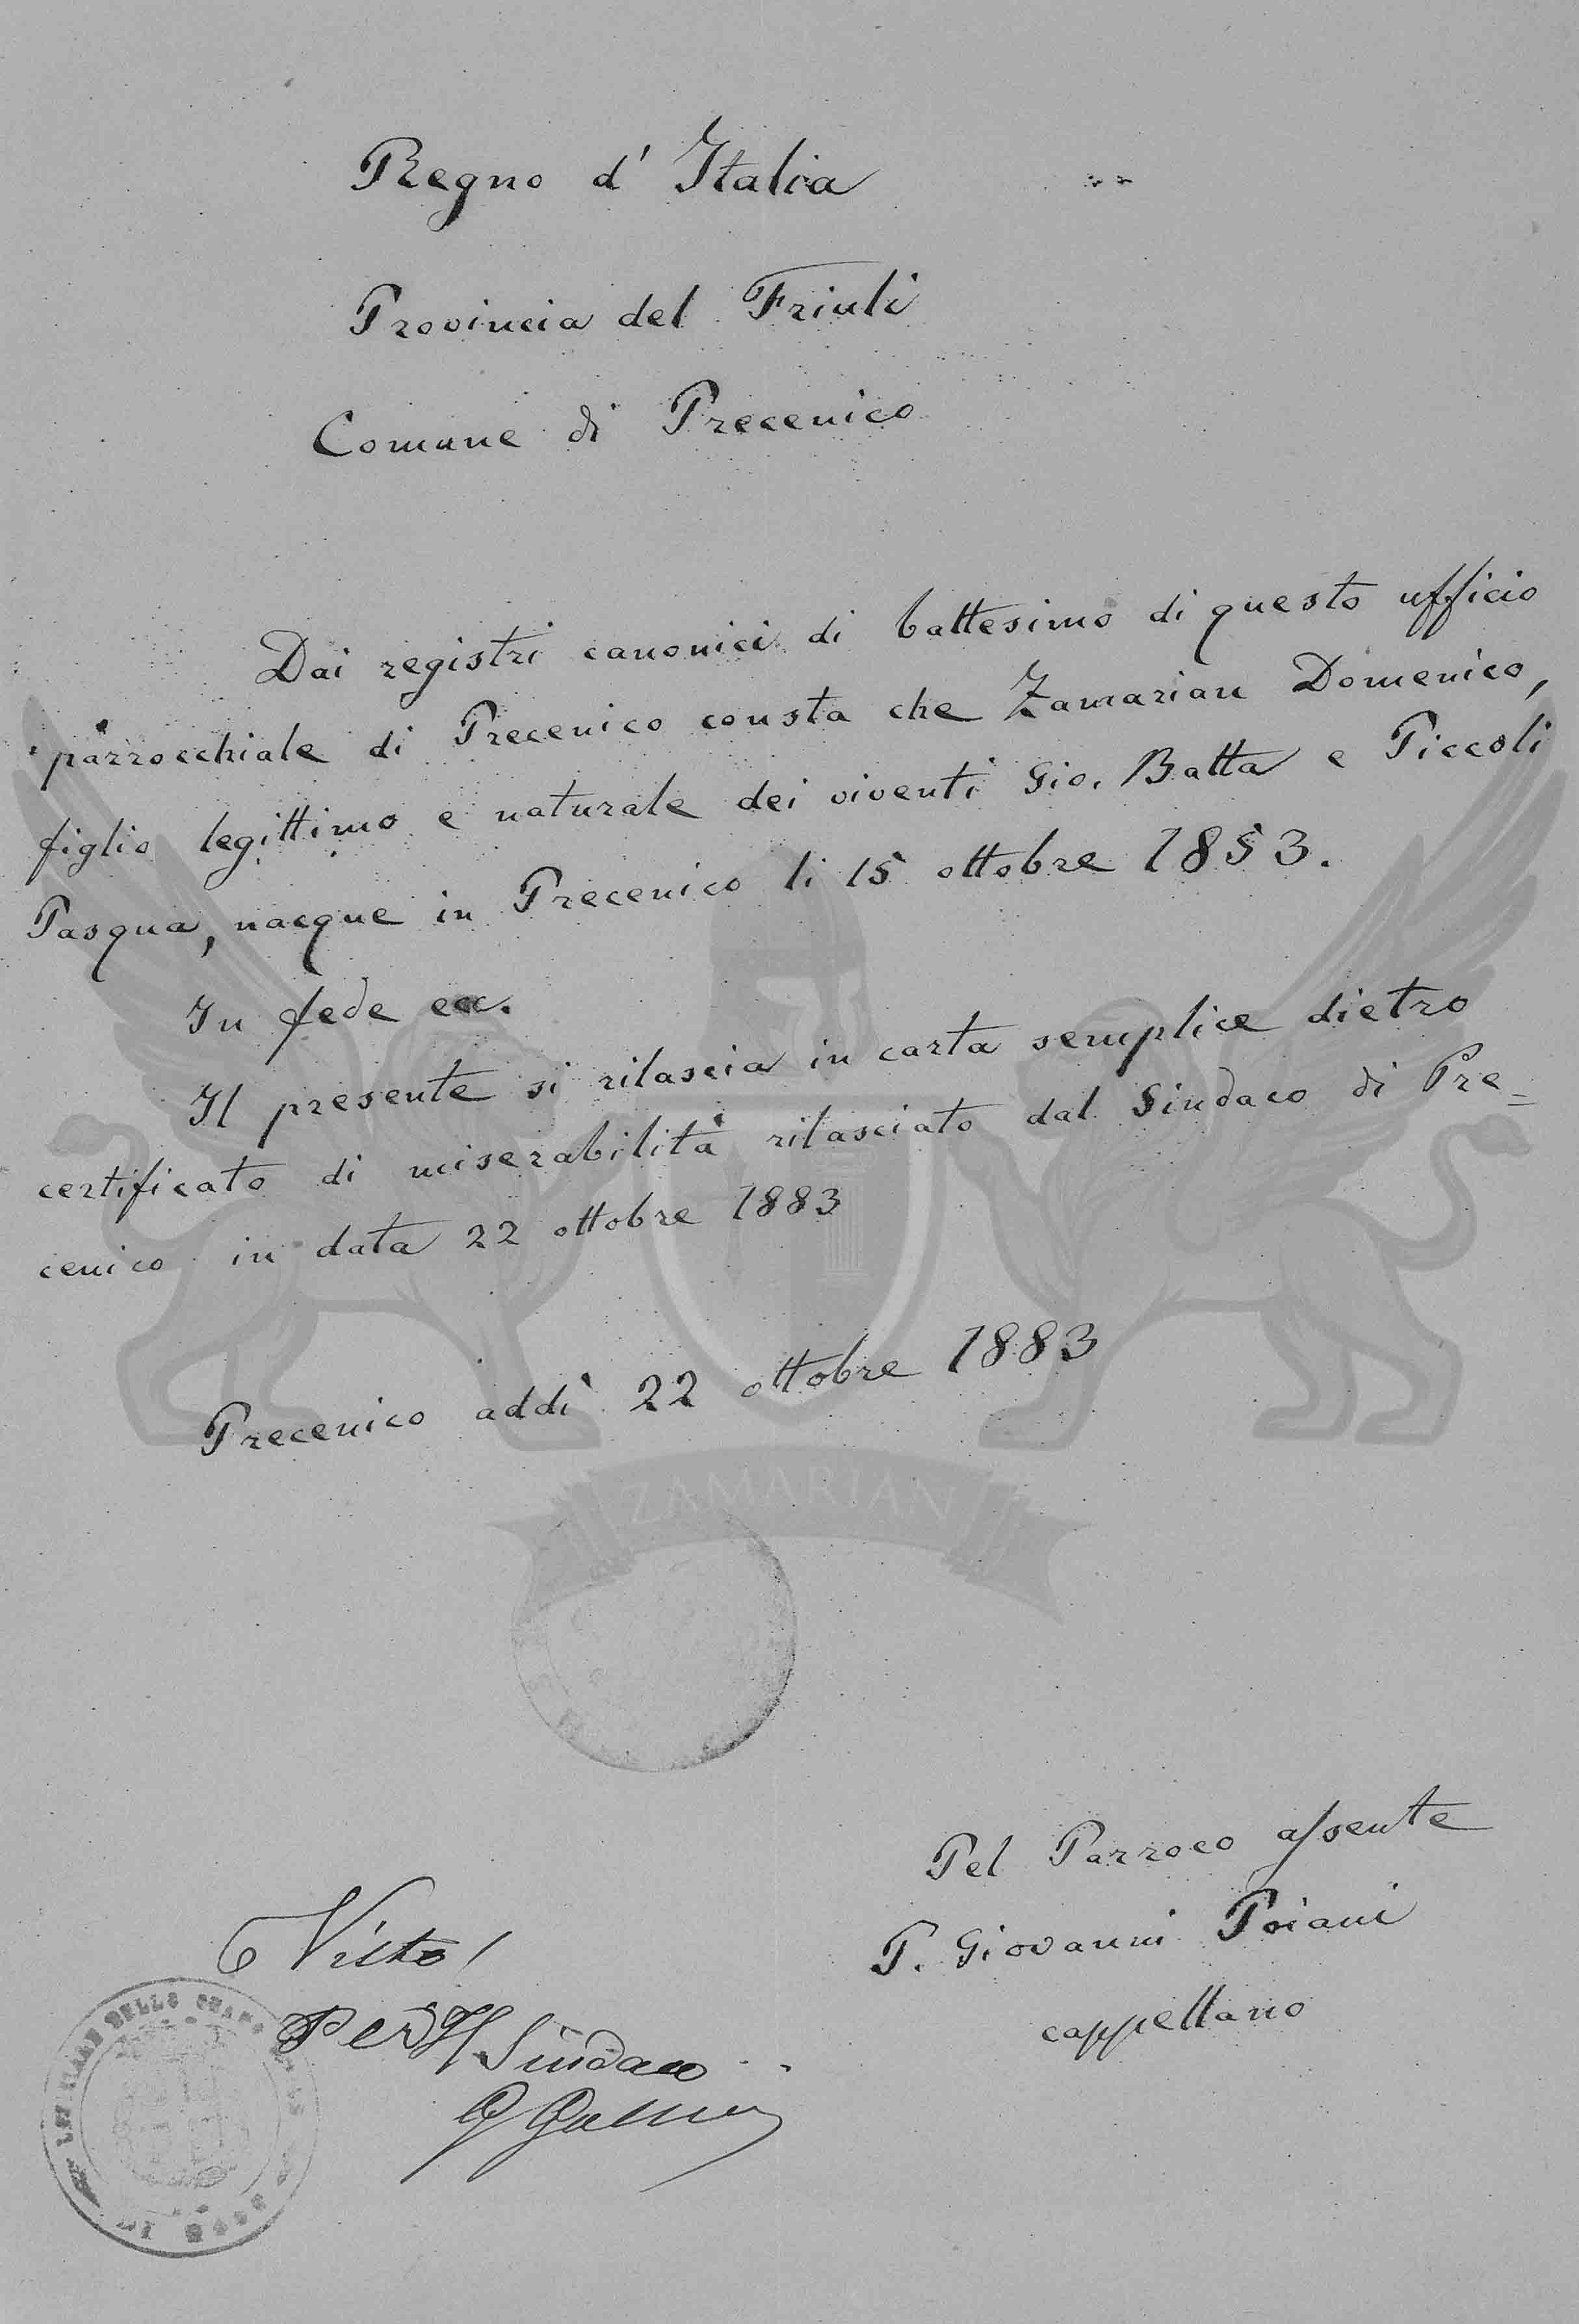 Regno d' Italia
Provincia del Friuli
Comune di Precenico
Dai registri canonici di battesimo di questo ufficio
parrocchiale di Precenico consta che Zamarian Domenico,
figlio legittimo e naturale dei viventi Gio. Batta e Piccoli
Pasqua, nacque in Precenico li 15 ottobre 1853.
In fede ecc.
Il presente si rilascia in carta semplice dietro
certificato di miserabilità rilasciato dal Sindaco di Pre=
cenico in data 22 ottobre 1883
Precenico addì 22 ottobre 1883
ZAMARIAN
Pel Parroco assente
P. Giovanni Poiani
cappellano
Visto!
Per Il Sindaco